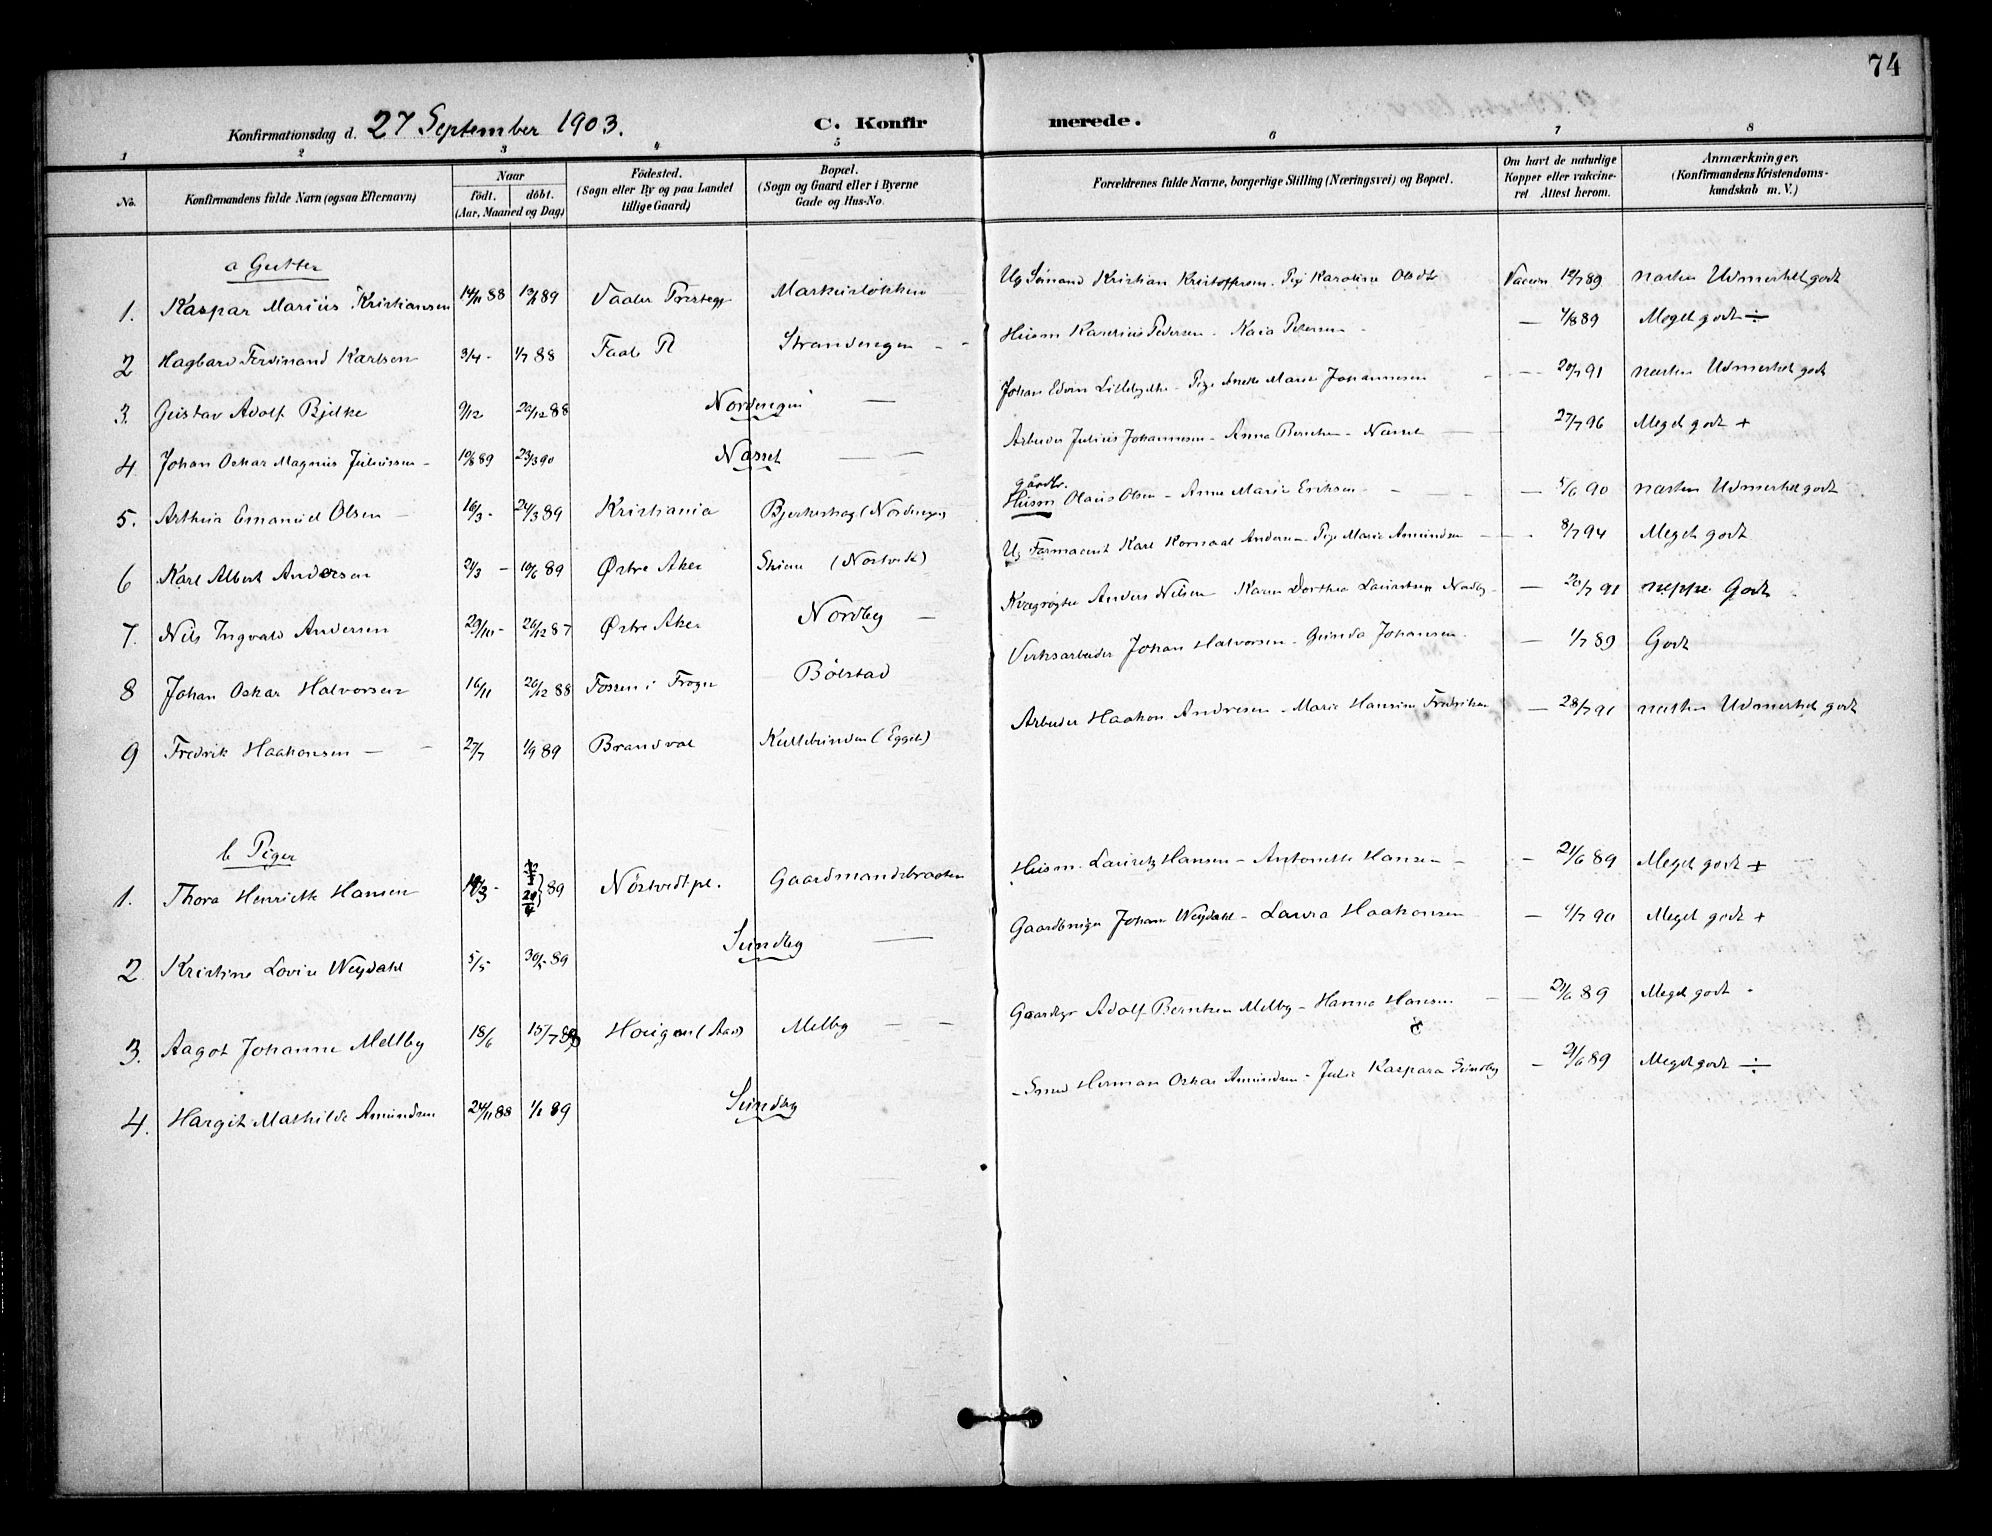 74
Konfirmationsdag d. 27 September 1903. C. Konfirmerede.
1 2 3 4 5 6 7 8
No. Konfirmandens fulde Navn (ogsaa Efternavn) Naar født. døbt. (Aar, Maaned og Dag) Fødested. (Sogn eller By og paa Landet tillige Gaard) Bopæl. (Sogn og Gaard eller i Byerne Gade og Hus-No. Forældrenes fulde Navne, borgerlige Stilling (Næringsvei) og Bopæl. Om havt de naturlige Kopper eller vakcineret Attest herom. Anmærkninger. (Konfirmandens Kristendomskundskab m. V.)
a Gutter
1. Kaspar Marius Kristiansen 14/11 88 89 Vaaler Markusløkken Ug Sømand Kristian Kristoffersen. Pige Karoline Vaccin 12/7 89 næsten Udmerket godt
2 Hagbard Ferdinand Karlsen 3/4 - 1/7 88 Strandengen - - Husm Pedersen - Kaia Petersen - — 4/8 89 Meget godt ÷
3. Gustav Adolf Bjelke 9/12 26/12 88 Nordengen — Johan Edvin - Pige Anette Marie Johannesen - — 20/7 91 næsten Udmerket godt
4 Johan Oskar Magnus Juliussen - 19/8 89 23/3 90 Næsset — Arbeider Julius Johannesen - Anna Berntsen - Næsset — 27/7 96 Meget godt +
5. Arthur Emanuel Olsen - 16/3 - 24/3 89 Kristiania Bjerkeshag (Nordengen) gårdbr. Husm Olaus Olsen - Anne Marie Eriksen - — 5/6 90 næsten Udmerket godt
6 Karl Albert Andersen 21/3 - 10/6 89 Østre Aker Skiene (Nøstvedt) Ug Farmaceut Karl Andersen - Pige Marie Amundsen - 8/7 94 Meget godt
7. Nils Ingvald Andersen 29/10 - 26/12 87 Østre Aker Nordby — Kvægrøgter Anders Nilsen Karen Dorthea Lauritsen Nordby - — 20/7 91 neppe Godt
8 Johan Oskar Halvorsen 16/11 26/12 88 Fossen i Frogn Bølstad Verksarbeider Johan Halvorsen - Gunda Johansen. — 1/7 89 Godt
9 Fredrik Haakonsen - 27/7 1/9 89 Brandval Kullebunden (Eggets) Arbeider Haakon Andresen - Marie Hansine Fredriksen — 28/7 91 næsten Udmerket godt
b Piger
1. Thora Henriette Hansen 19/3 - 89 Nøstvedtpl. Gaardmandsbraaten Husm. Lauritz Hansen - Antonette Hansen - — 21/6 89 Meget godt +
2. Kristine Lovise Weydahl 5/5 30/5 89 Sundby — Gaardbruger Johan Weydahl - Laura Haakonsen — 4/7 90 Meget godt +
3. Aagot Johanne Mellby 18/6 15/7 89 Haugen (Aas) Melby — Gaardbgr Adolf Berntsen Melby - Hanna Hansen - — 21/6 89 Meget godt -
4. Hargit Mathilde Amundsen 24/11 88 1/1 89 Sundby - Smed Herman Oskar Amundsen - Julie Kaspara Sundby — 21/6 89 Meget godt ÷